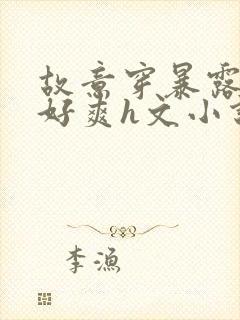 故意穿暴露
好爽h文小
李渔